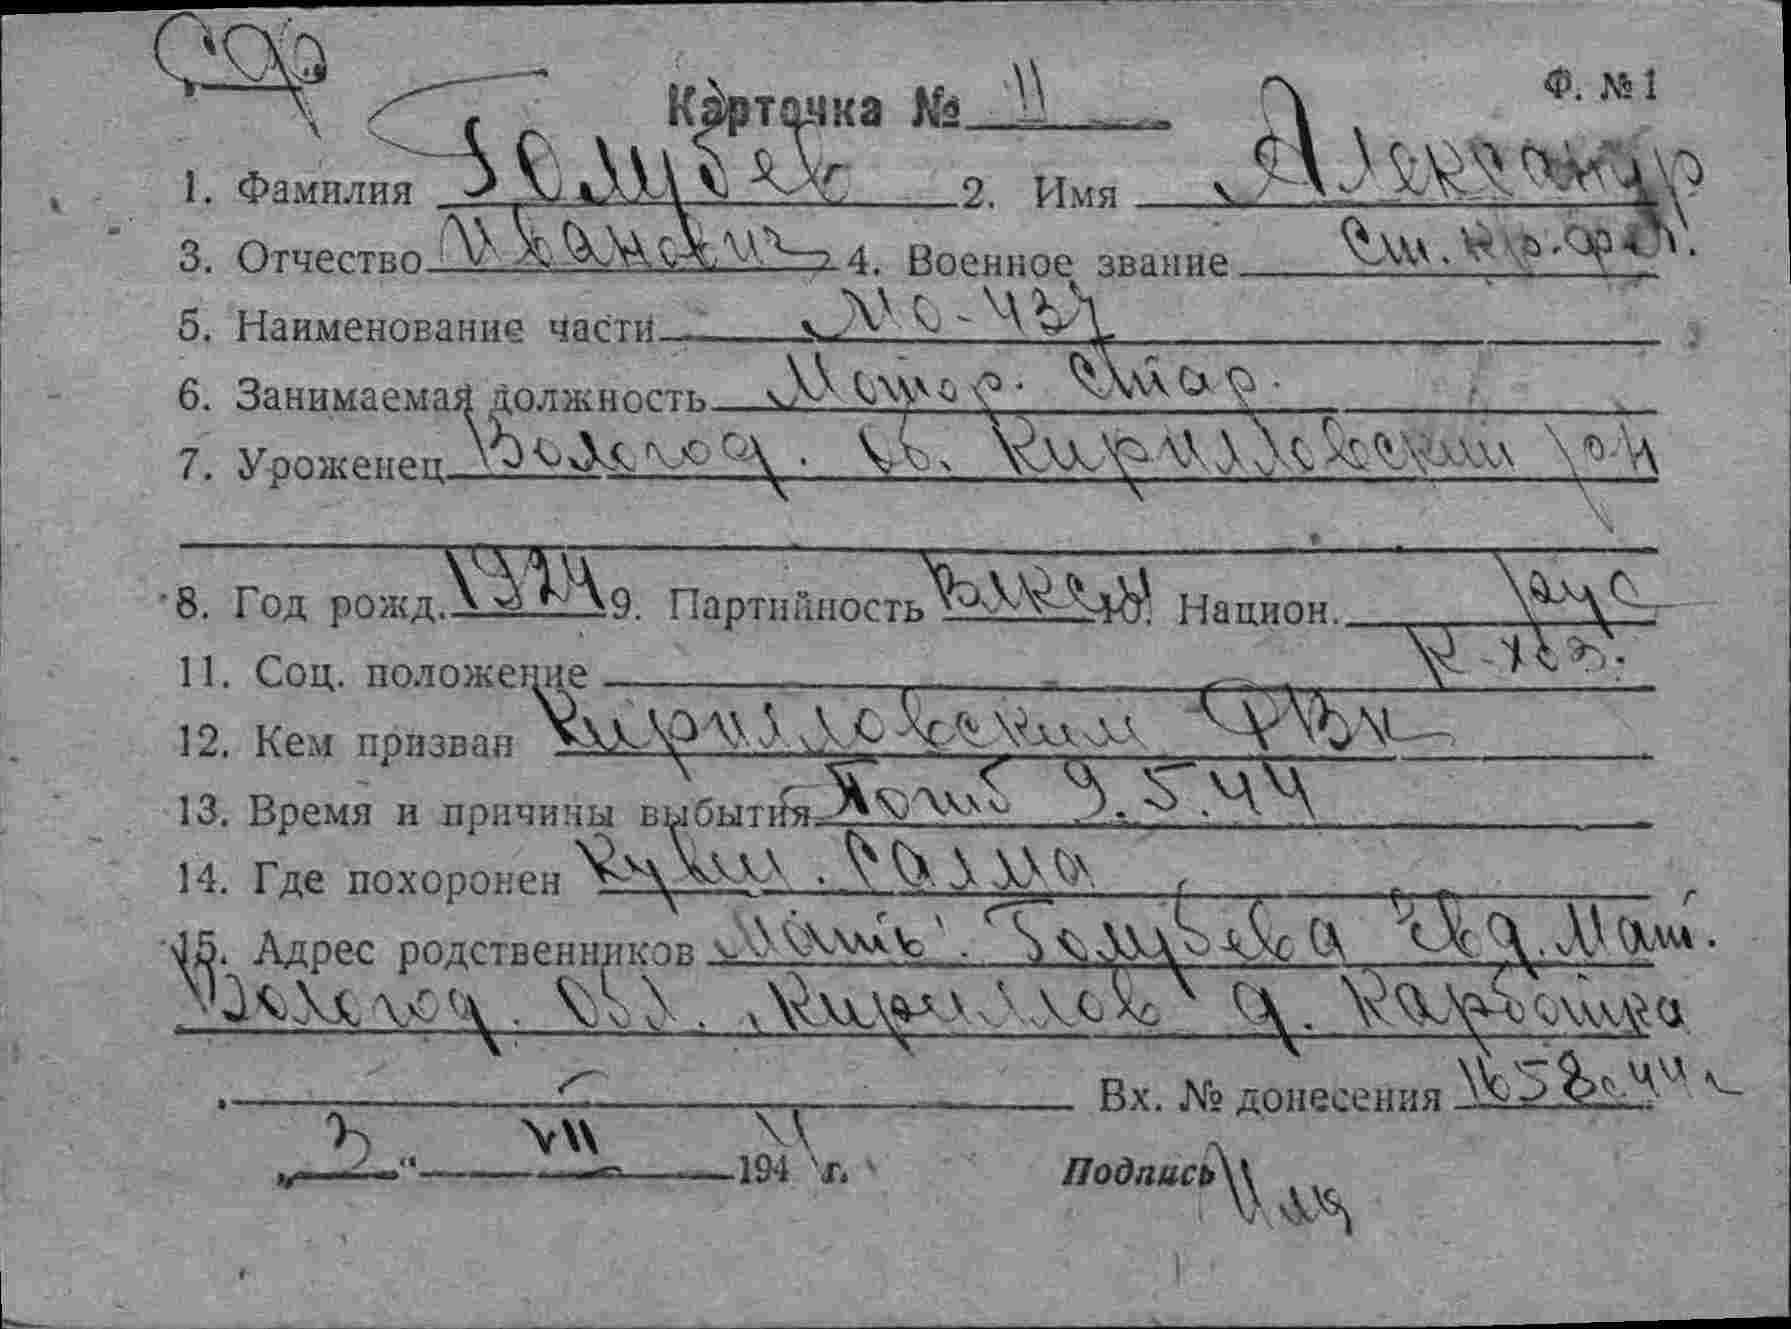 Карточка № 11 Ф. № 1
1. Фамилия Голубев 2. Имя Александр
3. Отчество Иванович 4. Военное звание Ст. кр-арм.
5. Наименование части МО-434
6. Занимаемая должность Мотор. Стар.
7. Уроженец Вологод. об. Кирилловский р-н
8. Год рожд. 1924 9. Партийность ВЛКСМ 10. Национ. рус
11. Соц. положение к-хоз.
12. Кем призван Кирилловским РВК
13. Время и причины выбытия Погиб 9.5.44
14. Где похоронен Салма
15. Адрес родственников Мать. Голубева Евд. Мат.
Вологод. обл. Кириллов д. Карботка
Вх. № донесения 44
„3“ VII 1944 г. Подпись